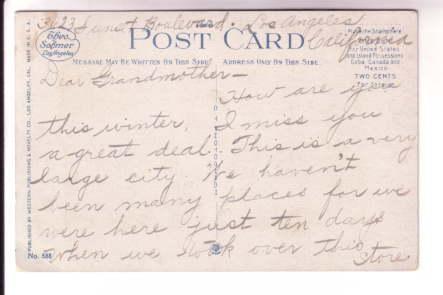 3623 Sunset Boulevard. Los Angeles
California
Theo.
Sohmer
Los Angeles
MADE IN U.S.A.
POST CARD
MESSAGE MAY BE WRITTEN ON THIS SIDE
ADDRESS ONLY ON THIS SIDE
for United States
and Island Possessions
Cuba, Canada and
Mexico
TWO CENTS
Dear Grandmother—
How are you
this winter, I miss you
a great deal. This is a very
large city. We haven't
been many places for we
were here just ten days
when we took over this
store
PUBLISHED BY WESTERN PUBLISHING & NOVELTY CO., LOS ANGELES, CAL.
No. 588